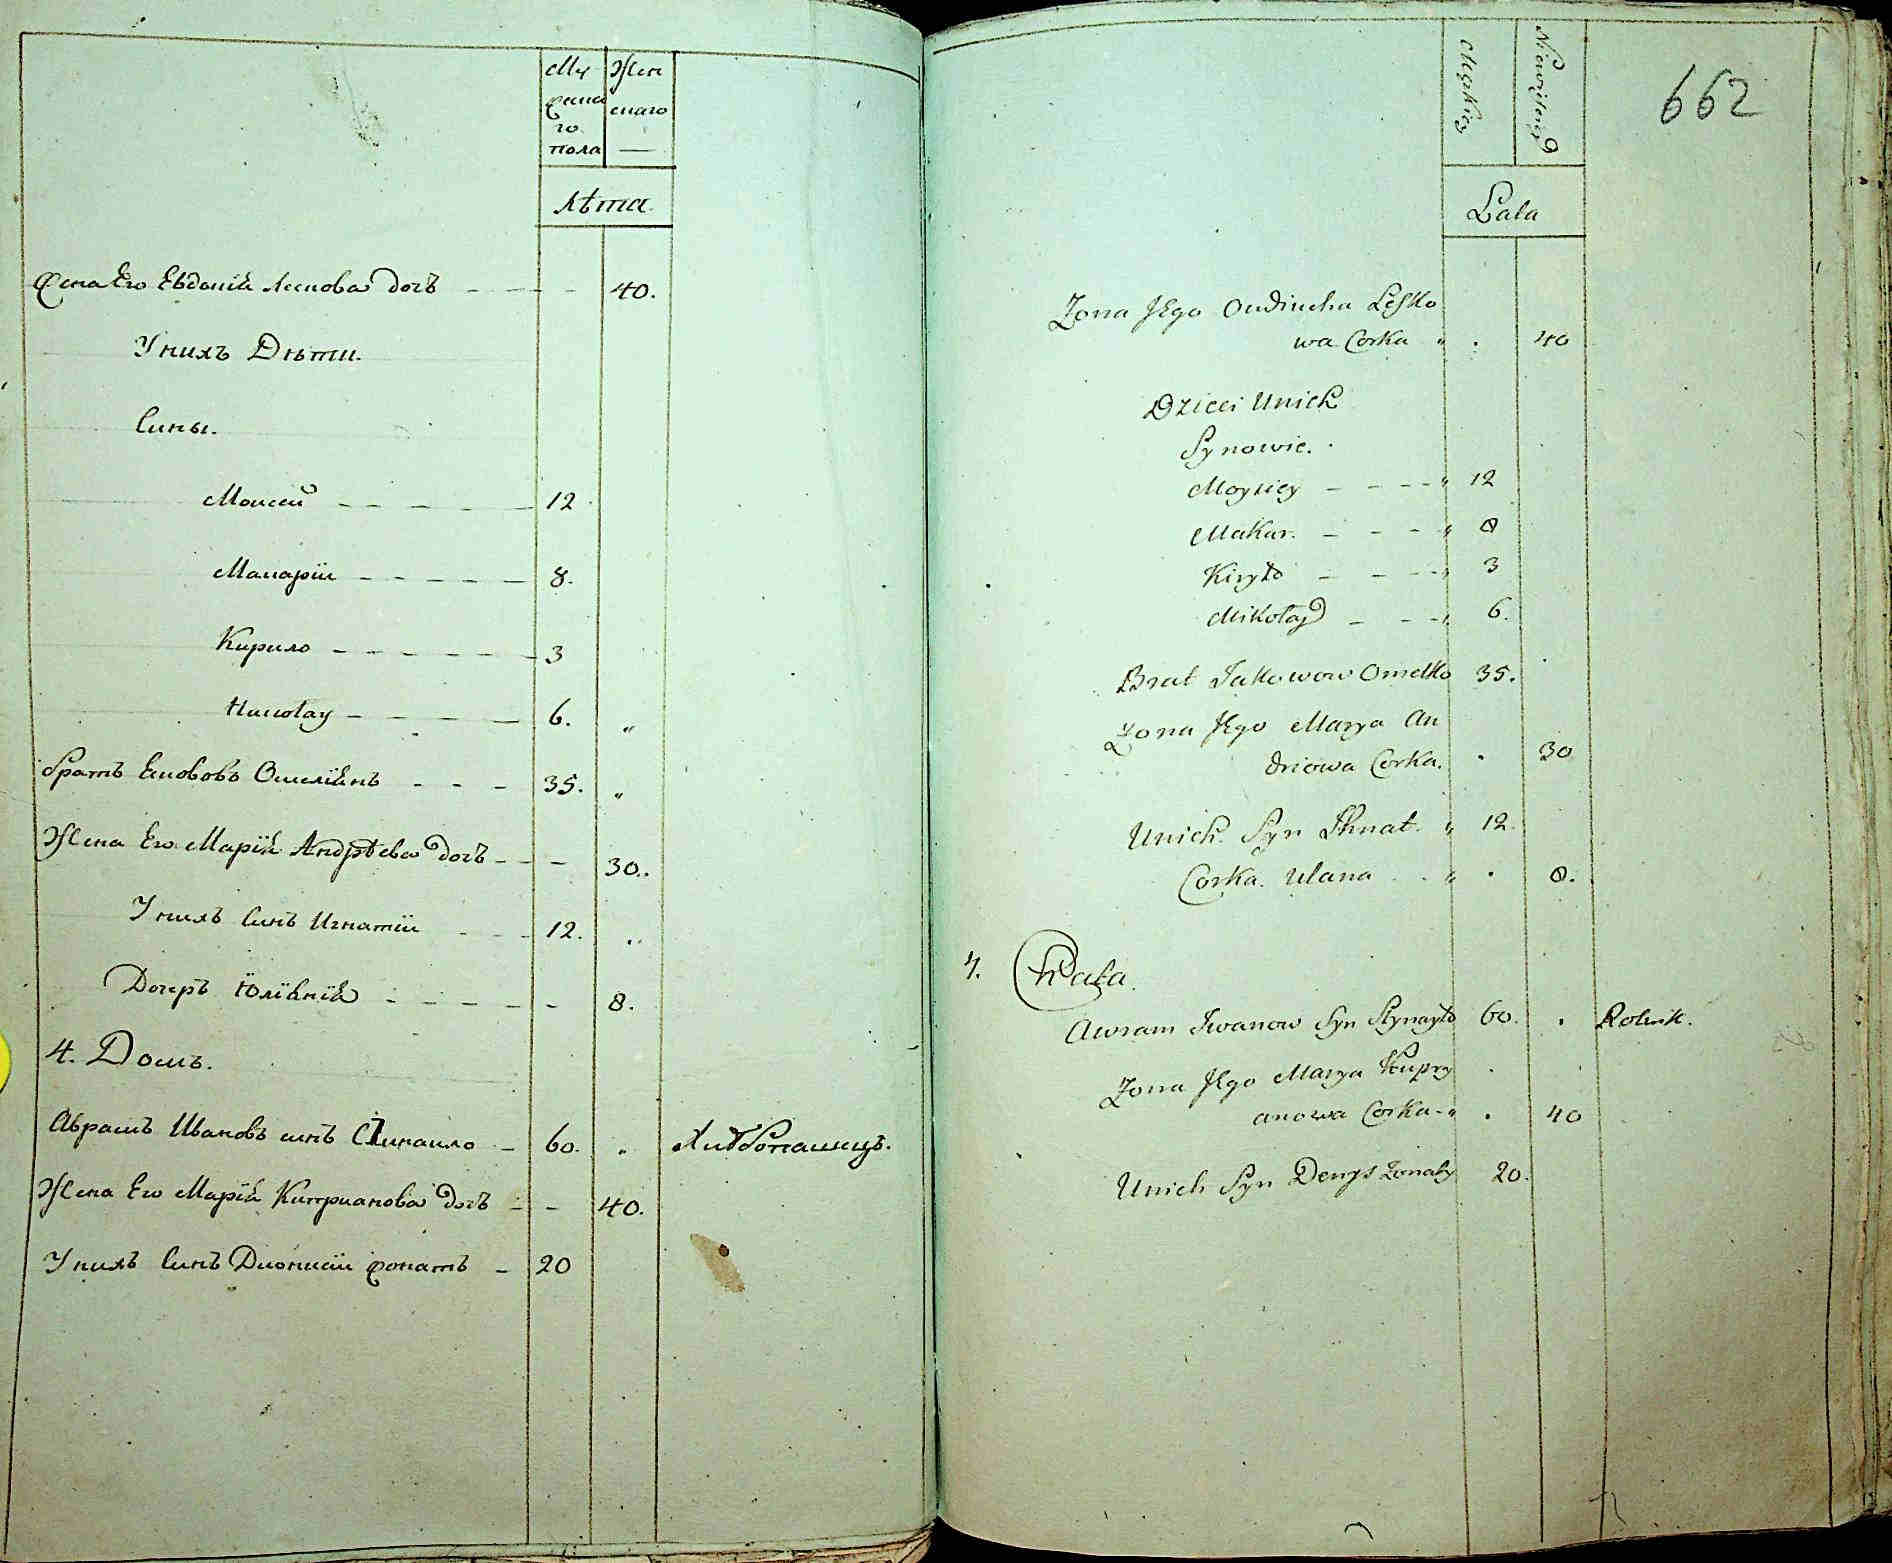 Му
жеска
го
пола
Жен
скаго
Лѣта
Жена Его Евдокія Леснова дочъ 40.
У нихъ Дѣти.
Сины.
Моисей 12
Макарій 8.
Кирило 3
Николау 6.
братъ Якововъ Омеліянъ 35.
Жена Его Марія Андрѣева дочъ 30.
У нихъ Синъ Игнатій 12.
Дочеръ Юліянія 8.
4. Домъ.
Абрамъ Ивановъ синъ 60. Хлѣбопашецъ.
Жена Его Марія Киприанова дочъ 40.
У нихъ Синъ Дионисій жонатъ 20
662
Męzkiey
Niewiesciey
Lata
Zona Jego Oudiucha Lesko
wa Corka 40
Dzieci Unich
Synowie.
Moysiey 12
Makar. 8
Kiryło 3
Mikołay 6.
Brat Jakowow Omelko 35.
Zona Jego Marya An
driowa Corka. 30
Unich Syn Ihnat. 12.
Corka Ulana 8.
4. Chata
Awram Iwanow Syn 60. Rolnik.
Zona Jego Marya Kupry
anowa Corka 40
Unich Syn Denys Zonaty 20.